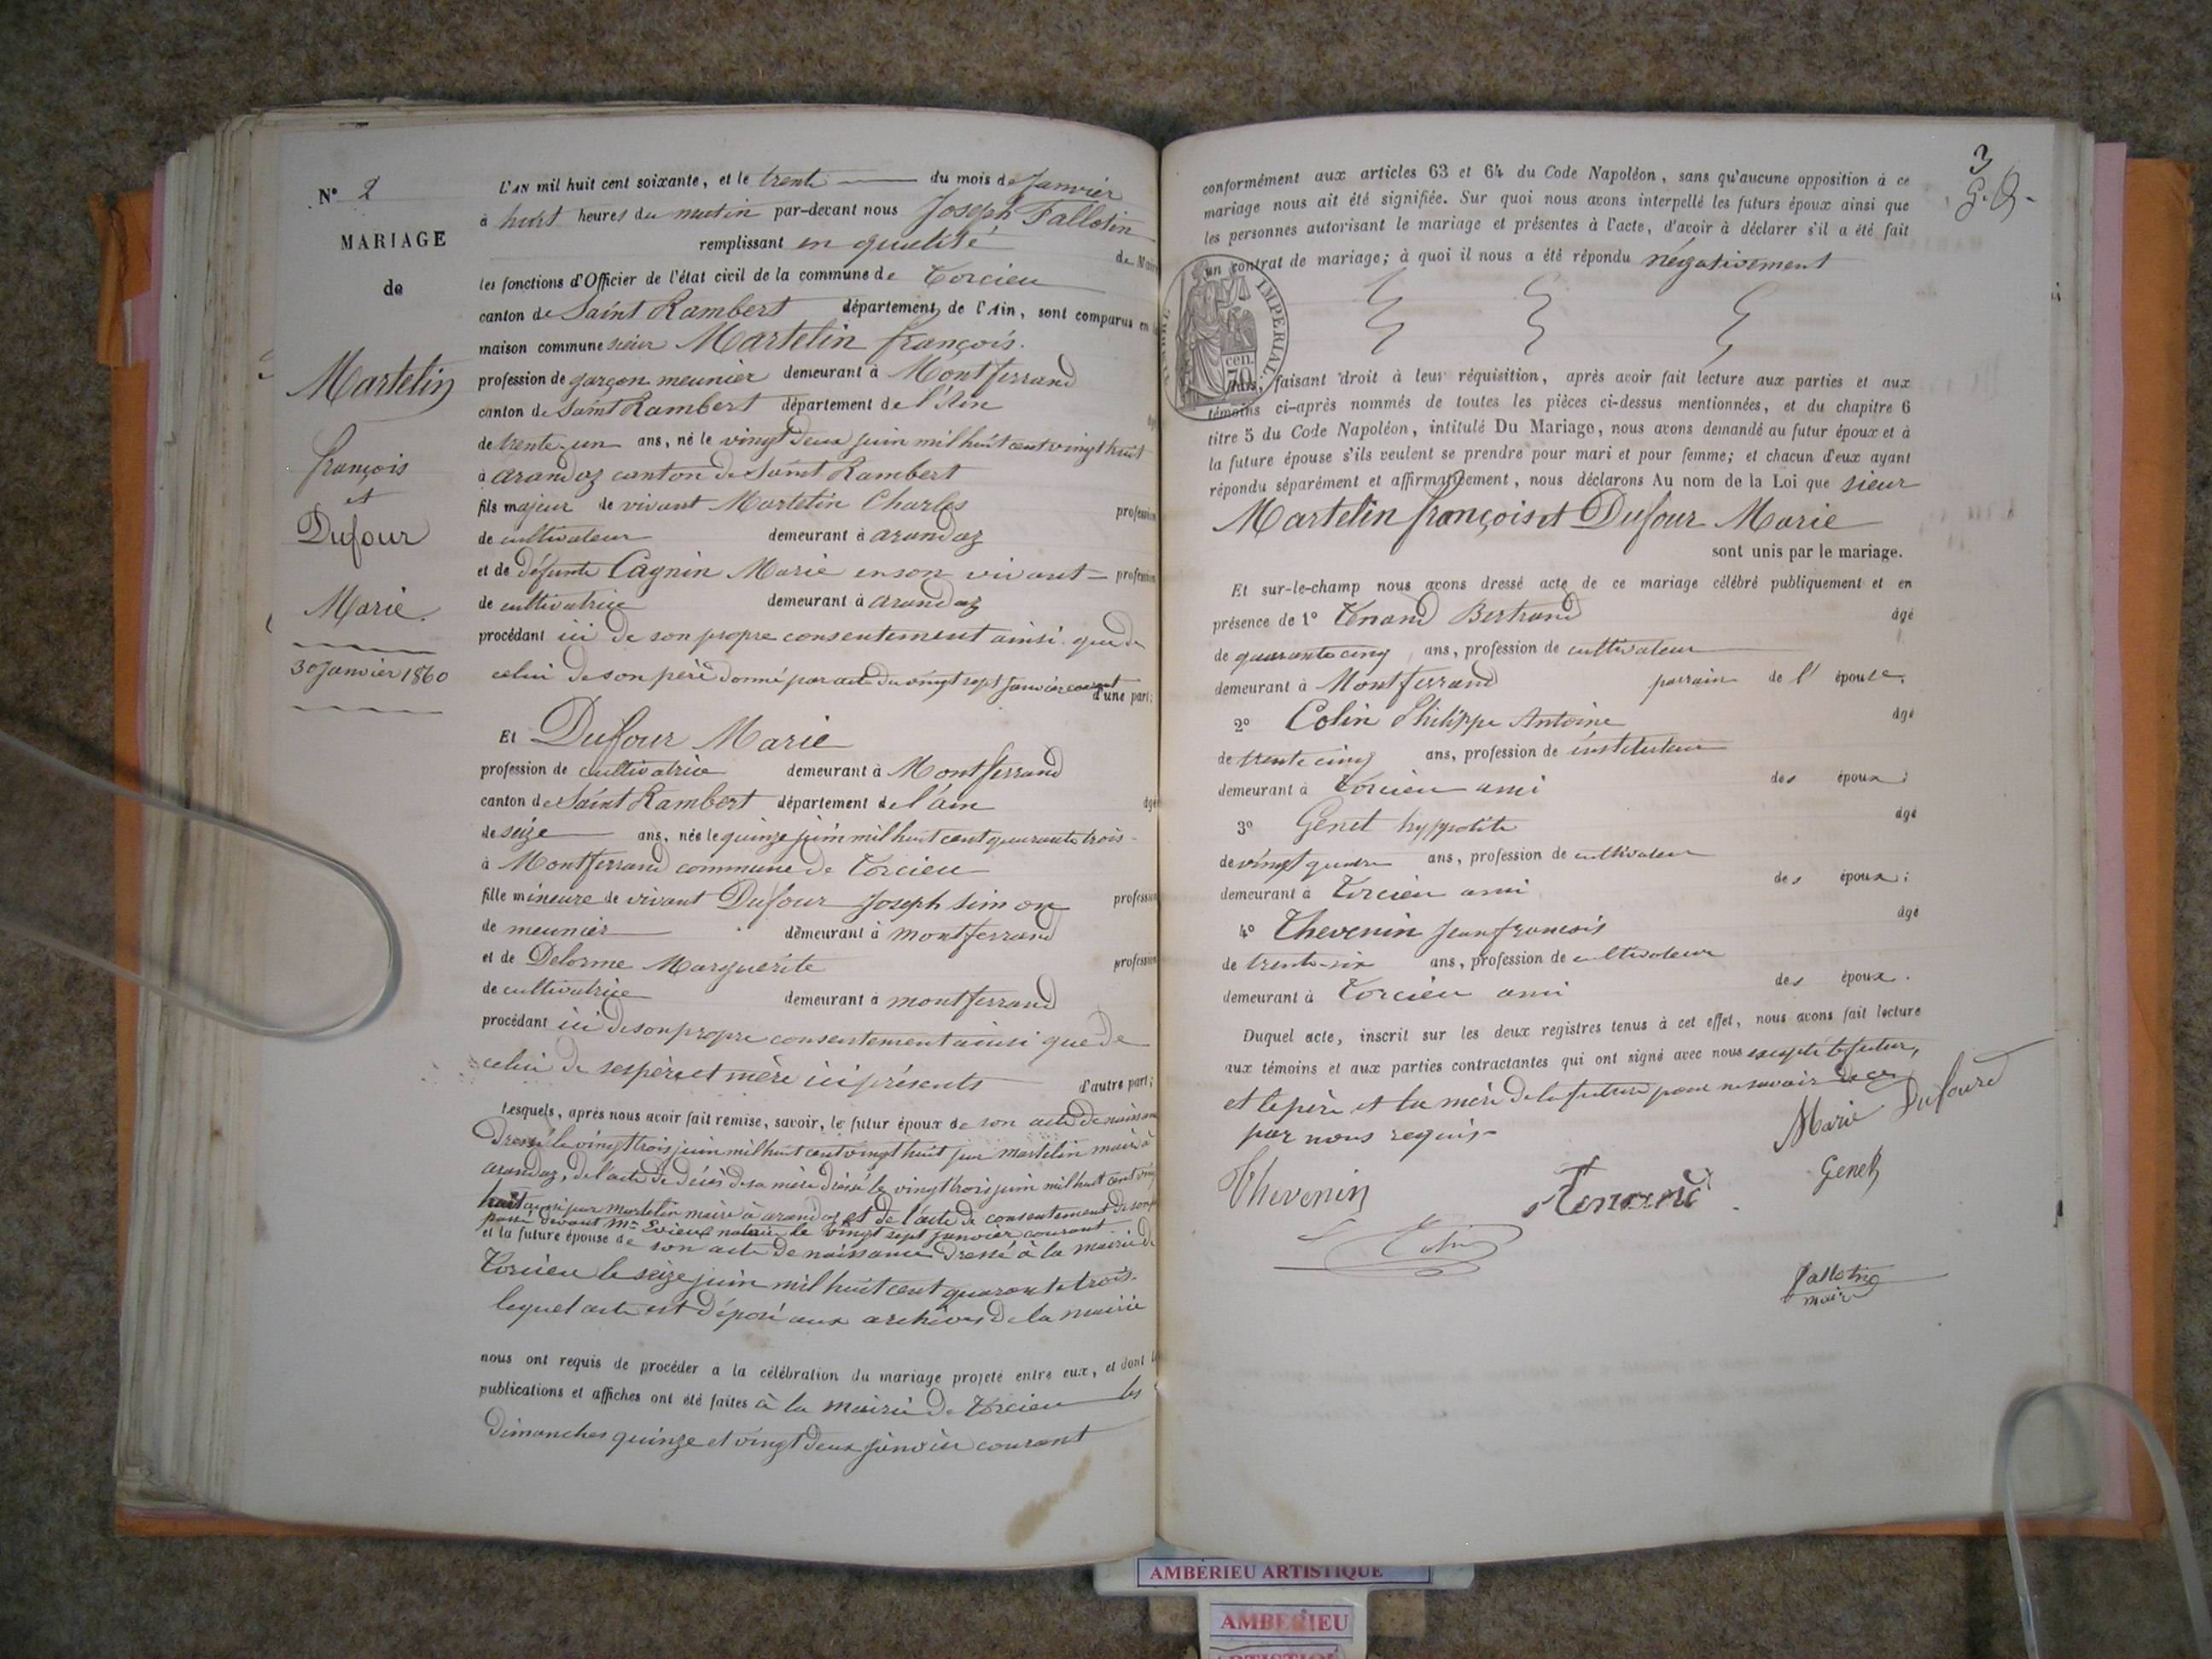 N° 2
MARIAGE
de
Martelin
françois
et
Dufour
Marie.
30 Janvier 1860
L'AN mil huit cent soixante, et le trente du mois de Janvier
à huit heures du matin par-devant nous Joseph Fallotin
remplissant en qualité de
les fonctions d'Officier de l'état civil de la commune de Torcieu
canton de Saint Rambert département de l'Ain, sont comparus en
maison commune sieur Martelin françois.
profession de garçon meunier demeurant à Montferrand
canton de Saint Rambert département de l'Ain
de trente-un ans, né le vingt deux juin mil huit cent vingt huit
à arandaz canton de Saint Rambert
fils majeur de vivant Martelin Charles profession
de cultivateur demeurant à arandaz
et de défunte Cagnin Marie en son vivant profession
de cultivatrice demeurant à arandaz
procédant ici de son propre consentement ainsi que de
celui de son père donné par acte du vingt sept Janvier courant d'une part;
Et Dufour Marie
profession de cultivatrice demeurant à Montferrand
canton de Saint Rambert département de l'ain âgé
de seize ans, née le quinze juin mil huit cent quarante trois
à Montferrand commune de Torcieu
fille mineure de vivant Dufour Joseph simon profession
de meunier demeurant à montferrand
et de Delorme Marguerite profession
de cultivatrice demeurant à montferrand
procédant ici de son propre consentement ainsi que de
celui de ses père et mère ici présents d'autre part;
Lesquels, après nous avoir fait remise, savoir, le futur époux de son acte de
Dressé le vingt trois juin mil huit cent vingt huit par Martelin maire à
arandaz, de l'acte de décès de sa mère dressé le vingt trois juin mil huit cent
huit aussi par Martelin maire à arandaz et de l'acte de consentement de son
passé devant Me Evieux notaire le vingt sept janvier courant
et la future épouse de son acte de naissance Dressé à la mairie de
Torcieu le seize juin mil huit cent quarante trois.
lequel acte est déposé aux archives de la mairie
nous ont requis de procéder a la célébration du mariage projeté entre eux, et dont
publications et affiches ont été faites à la mairie de Torcieu les
Dimanches quinze et vingt deux janvier courant
3
conformément aux articles 63 et 64 du Code Napoléon, sans qu'aucune opposition à ce
mariage nous ait été signifiée. Sur quoi nous avons interpellé les futurs époux ainsi que
les personnes autorisant le mariage et présentes à l'acte, d'avoir à déclarer s'il a été fait
un contrat de mariage; à quoi il nous a été répondu négativement
TIMBRE IMPERIAL
70 cen.
faisant droit à leur réquisition, après avoir fait lecture aux parties et aux
témoins ci-après nommés de toutes les pièces ci-dessus mentionnées, et du chapitre 6
titre 5 du Code Napoléon, intitulé Du Mariage, nous avons demandé au futur époux et à
la future épouse s'ils veulent se prendre pour mari et pour femme; et chacun d'eux ayant
répondu séparément et affirmativement, nous déclarons Au nom de la Loi que sieur
Martelin françois et Dufour Marie
sont unis par le mariage.
Et sur-le-champ nous avons dressé acte de ce mariage célébré publiquement et en
présence de 1° Tenand Bertrand âgé
de quarante cinq ans, profession de cultivateur
demeurant à Montferrand parrain de l' épouse.
2° Colin Philippe Antoine âgé
de trente cinq ans, profession de instituteur
demeurant à Torcieu ami des époux;
3° Genet hyppolite âgé
de vingt quatre ans, profession de cultivateur
demeurant à Torcieu ami des époux;
4° Thevenin Jean françois âgé
de trente-six ans, profession de cultivateur
demeurant à Torcieu ami des époux.
Duquel acte, inscrit sur les deux registres tenus à cet effet, nous avons fait lecture
aux témoins et aux parties contractantes qui ont signé avec nous excepté le futur,
et le père et la mère de la future pour ne savoir de ce
par nous requis
Marie Dufourd
Genet
Thevenin
Tenand
Colin
fallotin
maire
AMBÉRIEU ARTISTIQUE
AMBERIEU
ARTISTIQUE